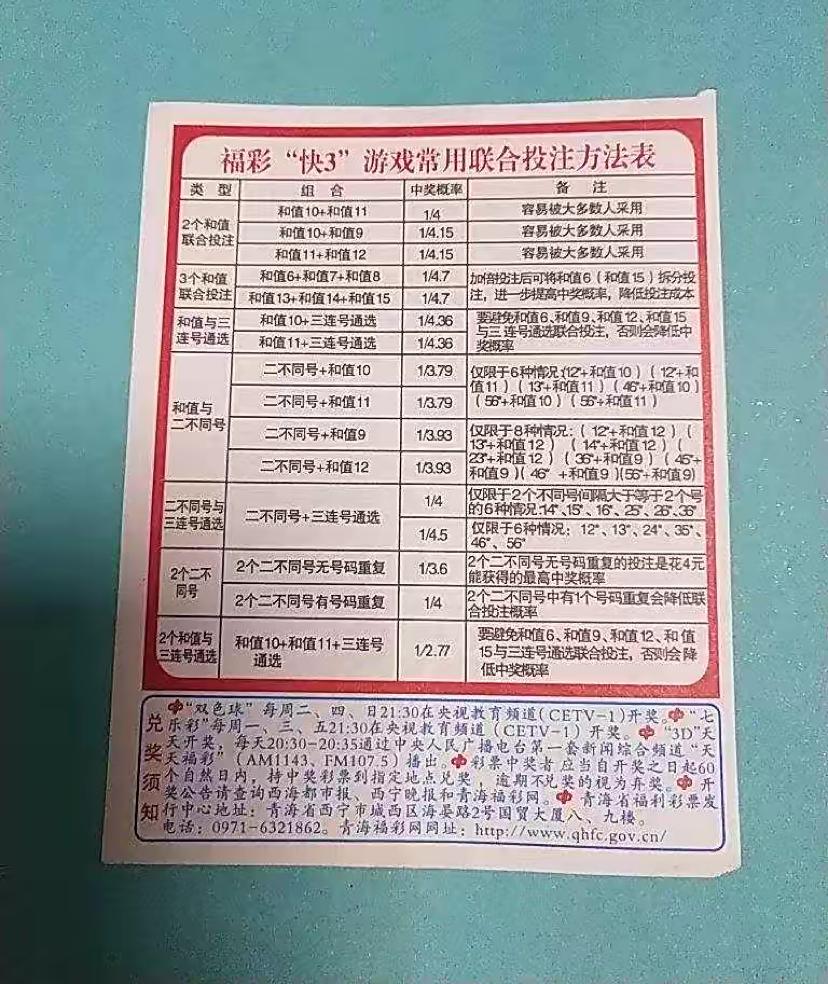 福彩“快3”游戏常用联合投注方法表
类 型 组 合 中奖概率 备 注
2个和值
联合投注
和值10+和值11 1/4 容易被大多数人采用
和值10+和值9 1/4.15 容易被大多数人采用
和值11+和值12 1/4.15 容易被大多数人采用
3个和值
联合投注
和值6+和值7+和值8 1/4.7
和值13+和值14+和值15 1/4.7
加倍投注后可将和值6(和值15)拆分投
注,进一步提高中奖概率,降低投注成本
和值与三
连号通选
和值10+三连号通选 1/4.36
和值11+三连号通选 1/4.36
要避免和值6、和值9、和值12、和值15
与三 连号通选联合投注,否则会降低中
奖概率
和值与
二不同号
二不同号+和值10 1/3.79
二不同号+和值11 1/3.79
仅限于6种情况:(12*+和值10)(12*+和
值11)(13*+和值11)(46*+和值10)
(56*+和值10)(56*+和值11)
二不同号+和值9 1/3.93
二不同号+和值12 1/3.93
仅限于8种情况:(12*+和值12)(
13*+和值12)(14*+和值12)(
23*+和值12)(36*+和值9)(45*+
和值9)(46* +和值9)(56*+和值9)
二不同号与
三连号通选
二不同号+三连号通选
1/4
仅限于2个不同号间隔大于等于2个号
的6种情况:14*、15*、16*、25*、26*、36*
1/4.5
仅限于6种情况:12*、13*、24*、35*、
46*、56*
2个二不
同号
2个二不同号无号码重复 1/3.6
2个二不同号无号码重复的投注是花4元
能获得的最高中奖概率
2个二不同号有号码重复 1/4
2个二不同号中有1个号码重复会降低联
合投注概率
2个和值与
三连号通选
和值10+和值11+三连号
通选
1/2.77
要避免和值6、和值9、和值12、和值
15与三连号通选联合投注,否则会降
低中奖概率
兑奖须知
“双色球”每周二、四、日21:30在央视教育频道(CETV-1)开奖。“七
乐彩”每周一、三、五21:30在央视教育频道(CETV-1)开奖。“3D”天
天开奖,每天20:30-20:35通过中央人民广播电台第一套新闻综合频道“天
天福彩”(AM1143、FM107.5)播出。彩票中奖者 应当自开奖之日起60
个自然日内,持中奖彩票到指定地点兑奖,逾期不兑奖的视为弃奖。开
奖公告请查询西海都市报、西宁晚报和青海福彩网。青海省福利彩票发
行中心地址:青海省西宁市城西区海晏路2号国贸大厦八、九楼。
电话:0971-6321862。青海福彩网网址:http://www.qhfc.gov.cn/